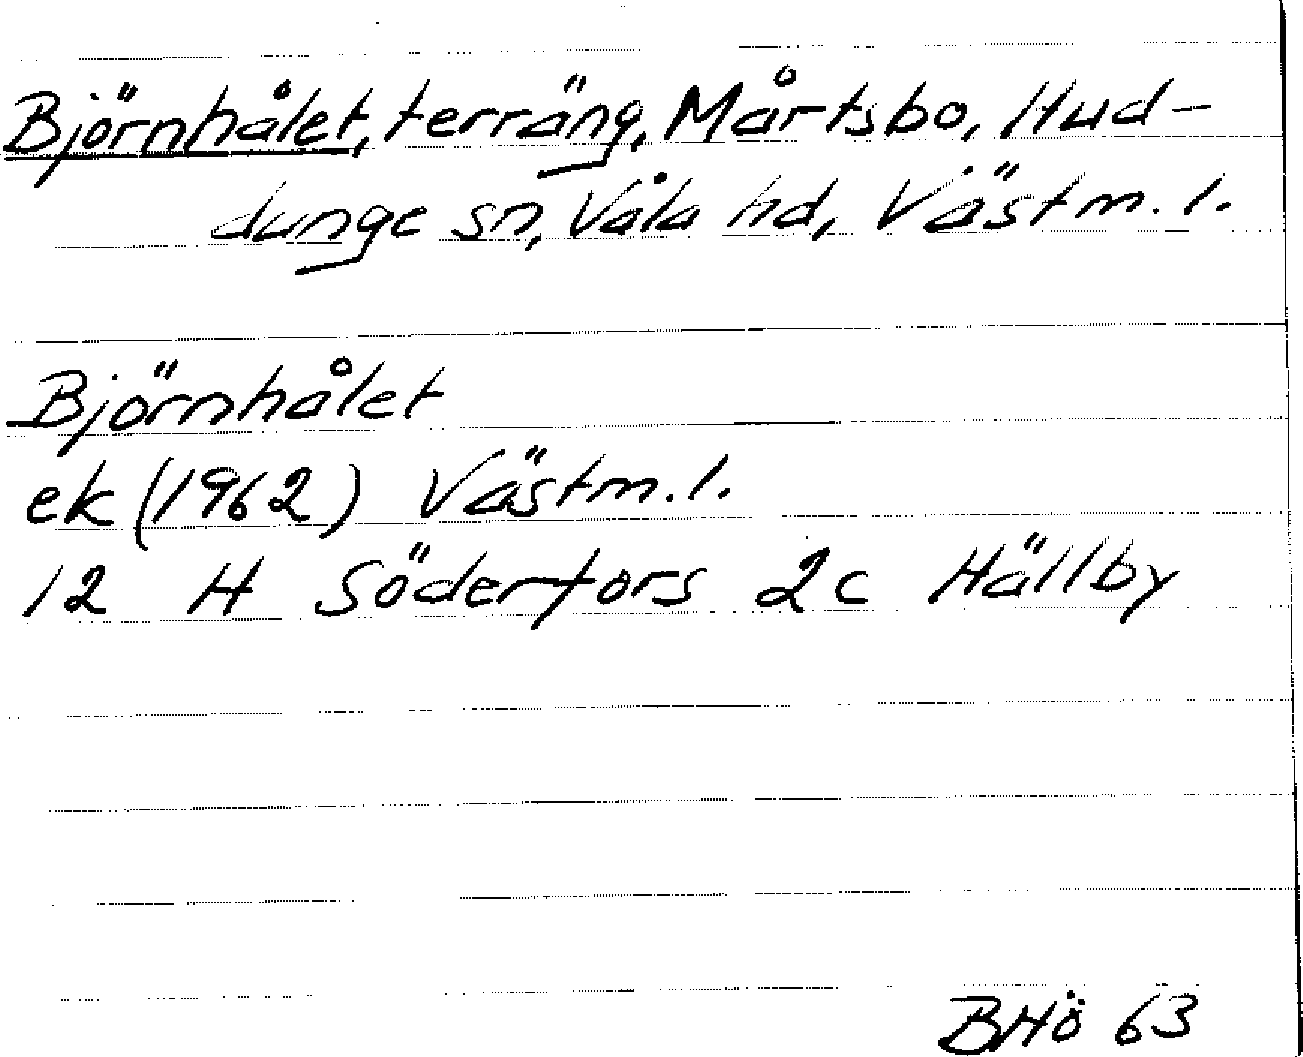 Björnhålet, terräng, Mårtsbo, Hud-
dunge sn, Våla hd, Västm. l.
Björnhålet
ek (1962) Västm. l.
12 H Söderfors 2c Hällby
BHö 63